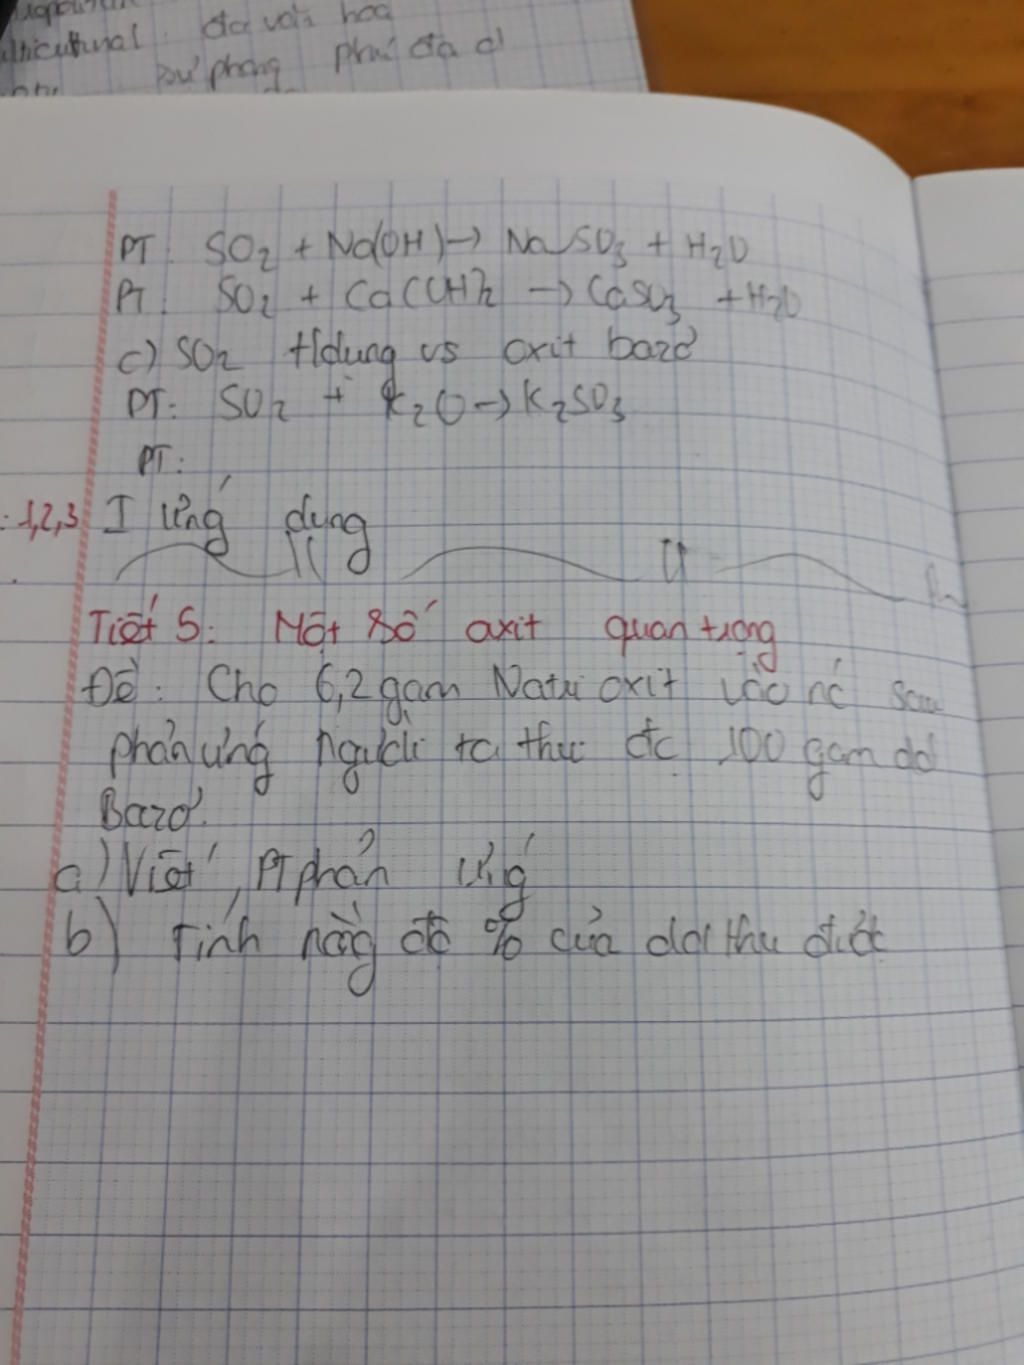 đa văn hoá
phú đa d
PT: SO2 + Na(OH) → NaSO3 + H2O
PT: SO2 + Ca(OH)2 → CaSO3 + H2O
c) SO2 t/dụng vs oxit bazơ
PT: SO2 + K2O → K2SO3
PT:
: 1,2,3 I ứng dụng
Tiết 5: Một số axit quan trọng
Đề: Cho 6,2 gam Natri oxit vào nc sau
phản ứng người ta thu đc 100 gam dd
Bazơ.
a) Viết PT phản ứng
b) Tính nồng độ % của dd thu được